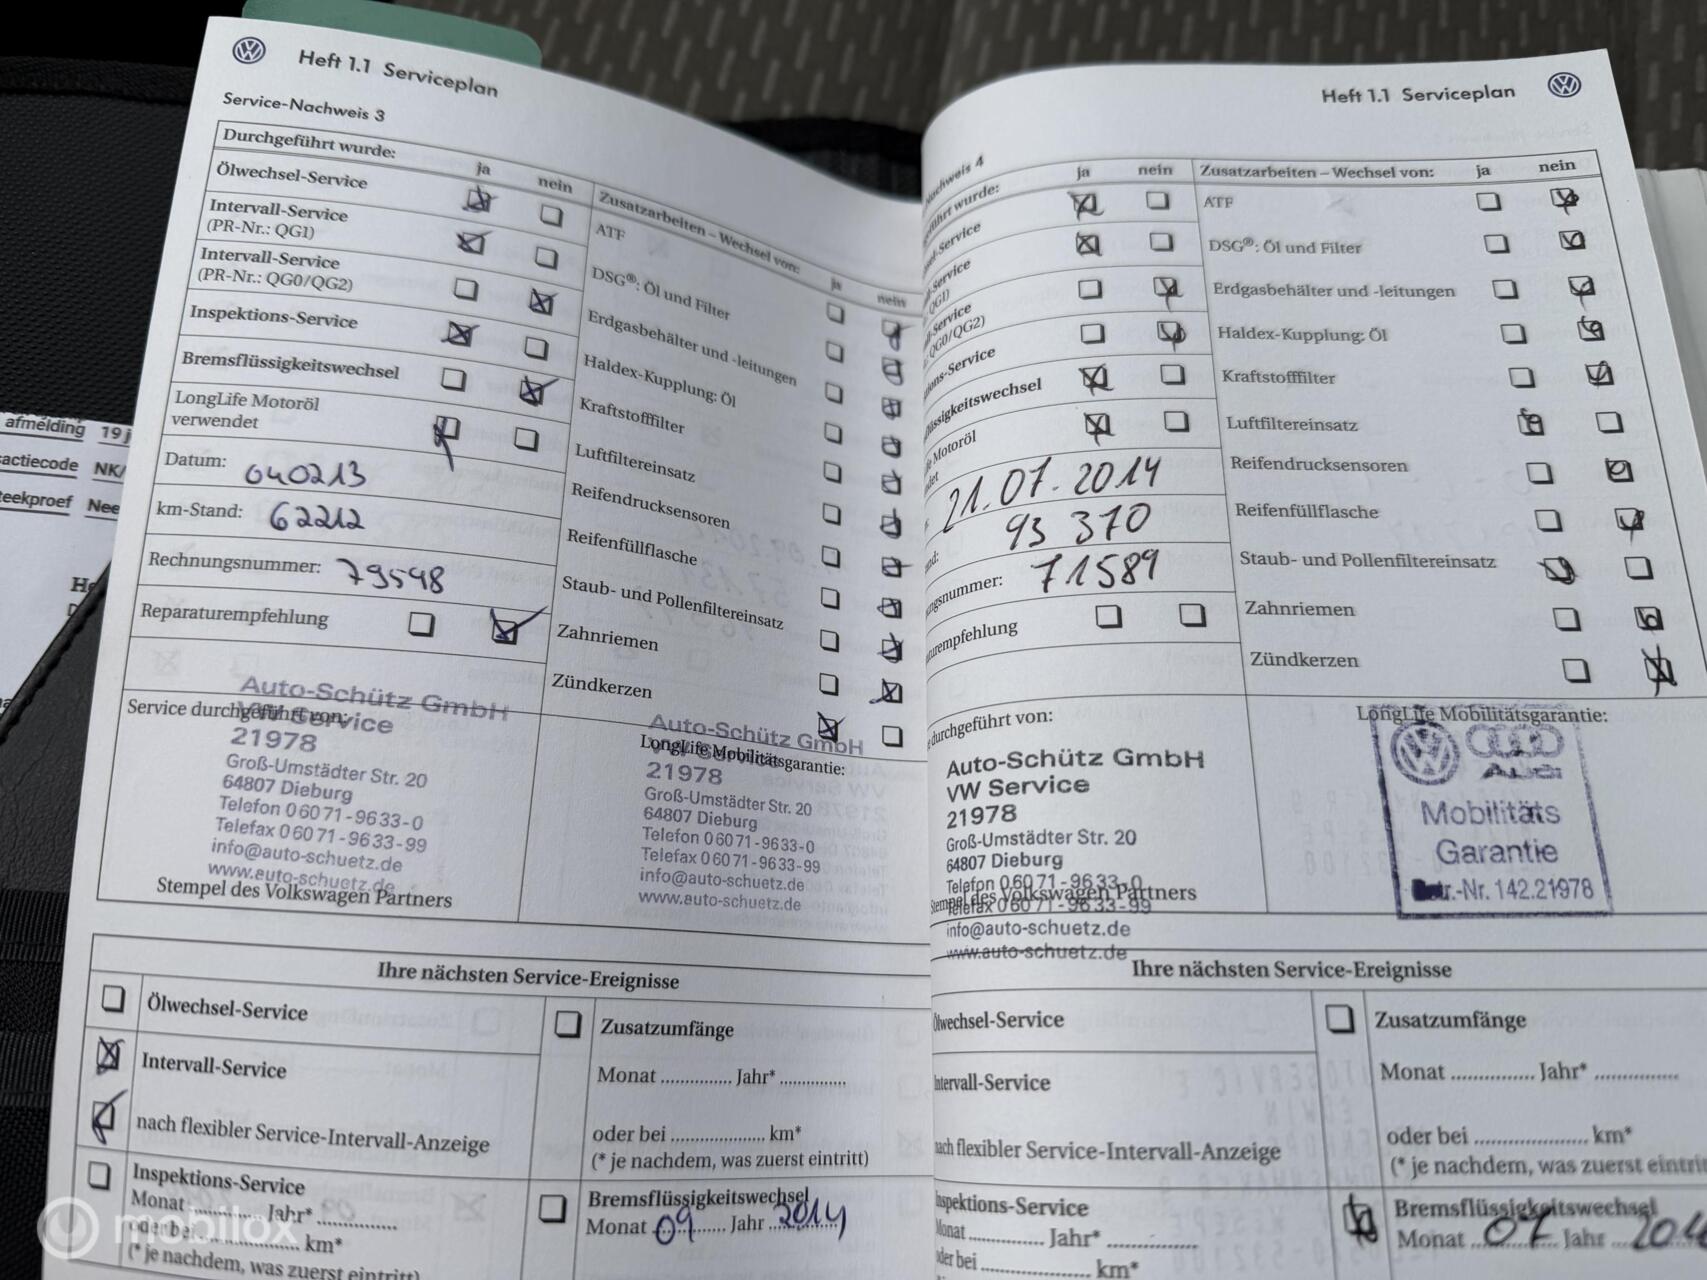 Heft 1.1 Serviceplan
Service-Nachweis 3
Durchgeführt wurde:
ja
nein
Ölwechsel-Service
Intervall-Service
(PR-Nr.: QG1)
Intervall-Service
(PR-Nr.: QG0/QG2)
Inspektions-Service
Bremsflüssigkeitswechsel
LongLife Motoröl
verwendet
Datum: 040213
km-Stand: 62212
Rechnungsnummer: 79548
Reparaturempfehlung
Zusatzarbeiten – Wechsel von:
ja
nein
ATF
DSG®: Öl und Filter
Erdgasbehälter und -leitungen
Haldex-Kupplung: Öl
Kraftstofffilter
Luftfiltereinsatz
Reifendrucksensoren
Reifenfüllflasche
Staub- und Pollenfiltereinsatz
Zahnriemen
Zündkerzen
Service durchgeführt von:
Auto-Schütz GmbH
VW Service
21978
Groß-Umstädter Str. 20
64807 Dieburg
Telefon 0 60 71 - 96 33-0
Telefax 0 60 71 - 96 33-99
info@auto-schuetz.de
www.auto-schuetz.de
Stempel des Volkswagen Partners
LongLife Mobilitätsgarantie:
Auto-Schütz GmbH
VW Service
21978
Groß-Umstädter Str. 20
64807 Dieburg
Telefon 0 60 71 - 96 33-0
Telefax 0 60 71 - 96 33-99
info@auto-schuetz.de
www.auto-schuetz.de
Ihre nächsten Service-Ereignisse
Ölwechsel-Service
Intervall-Service
nach flexibler Service-Intervall-Anzeige
Inspektions-Service
Monat ............ Jahr* ............
oder bei ............ km*
(* je nachdem, was zuerst eintritt)
Zusatzumfänge
Monat ............ Jahr* ............
oder bei ............ km*
(* je nachdem, was zuerst eintritt)
Bremsflüssigkeitswechsel
Monat 09 Jahr 2014
Heft 1.1 Serviceplan
Nachweis 4
führt wurde:
ja
nein
-Service
-Service
QG1)
-Service
QG0/QG2)
ons-Service
lüssigkeitswechsel
Motoröl
21.07.2014
93 370
nummer: 71589
empfehlung
Zusatzarbeiten – Wechsel von:
ja
nein
ATF
DSG®: Öl und Filter
Erdgasbehälter und -leitungen
Haldex-Kupplung: Öl
Kraftstofffilter
Luftfiltereinsatz
Reifendrucksensoren
Reifenfüllflasche
Staub- und Pollenfiltereinsatz
Zahnriemen
Zündkerzen
durchgeführt von:
Auto-Schütz GmbH
VW Service
21978
Groß-Umstädter Str. 20
64807 Dieburg
Telefon 0 60 71 - 96 33-0
Stempel des Volkswagen Partners
Telefax 0 60 71 - 96 33-99
info@auto-schuetz.de
www.auto-schuetz.de
LongLife Mobilitätsgarantie:
Audi
Mobilitäts
Garantie
Btr.-Nr. 142.21978
Ihre nächsten Service-Ereignisse
Ölwechsel-Service
Intervall-Service
nach flexibler Service-Intervall-Anzeige
Inspektions-Service
Monat ............ Jahr* ............
oder bei ............ km*
Zusatzumfänge
Monat ............ Jahr* ............
oder bei ............ km*
(* je nachdem, was zuerst eintritt
Bremsflüssigkeitswechsel
Monat 07 Jahr 201
afmelding 19 j
actiecode NK/
teekproef Nee
mobilox